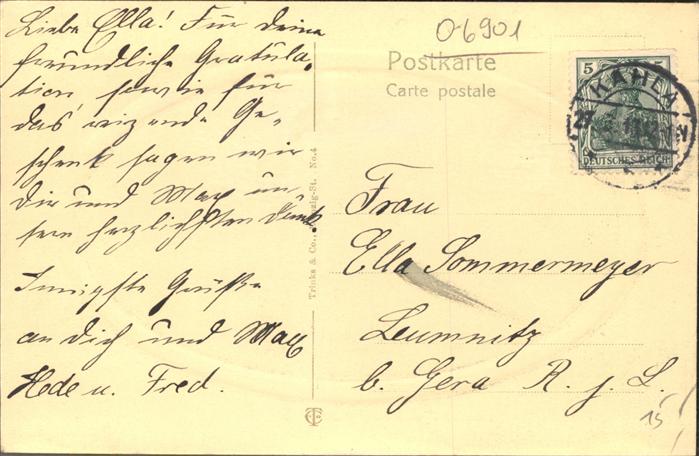 Liebe Ella! Für deine
freundliche Gratula-
tion sowie für
das reizende Ge-
schenk sagen wir
dir und Max un
sern herzlichsten Dank.
Innigste Grüße
an dich und Max
Hede u. Fred.
Trinks & Co., Leipzig-St. No.4
06901
Postkarte
Carte postale
5
DEUTSCHES REICH
KAHLA
Frau
Ella Sommermeyer
Leumnitz
b. Gera R. j. L.
15